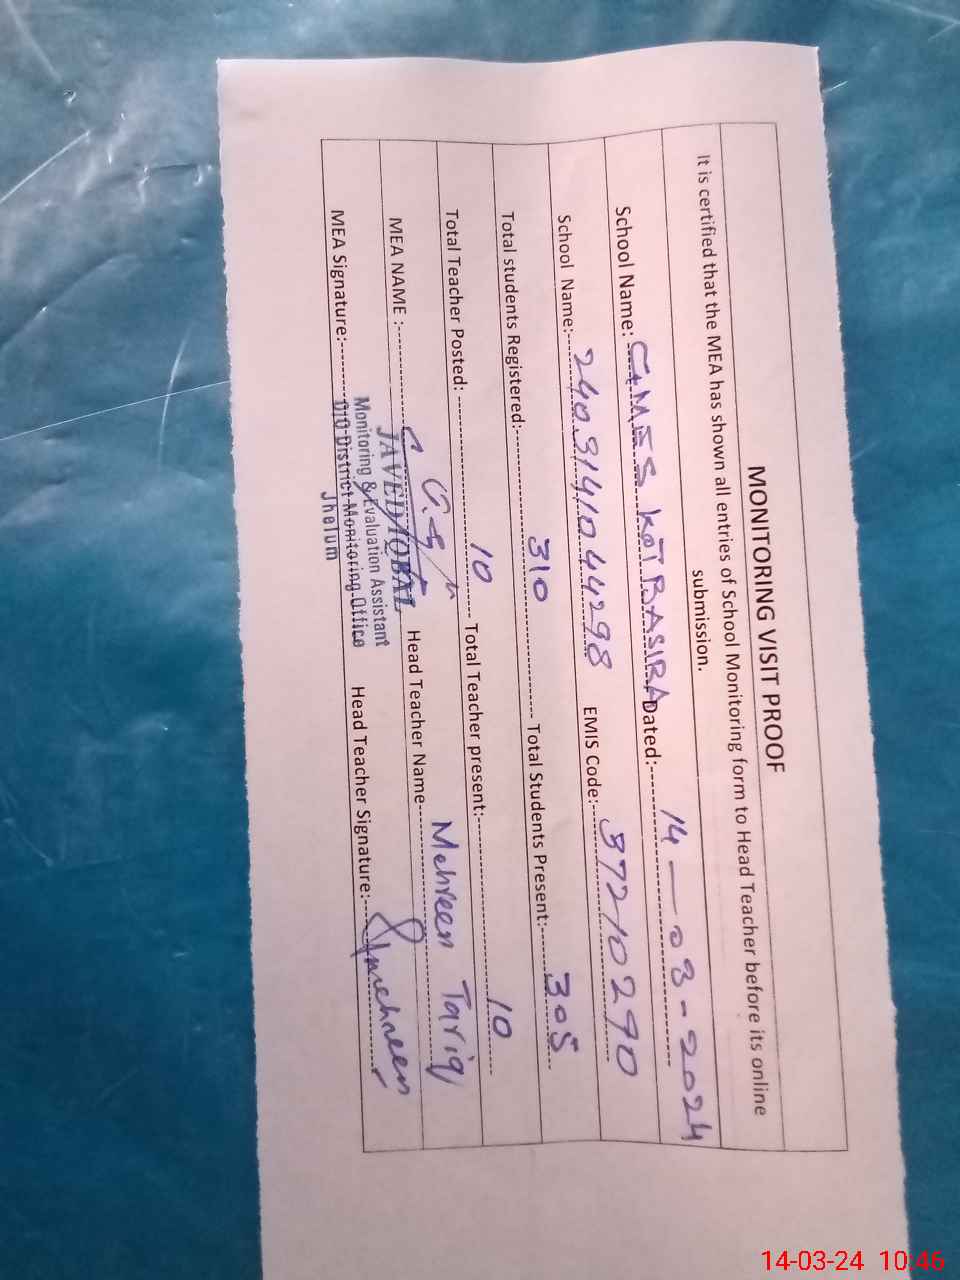 MONITORING VISIT PROOF
It is certified that the MEA has shown all entries of School Monitoring form to Head Teacher before its online
submission.
School Name: GMES KOT BASIRA Dated: 14-03-2024
School Name: 2403141044298 EMIS Code: 37210290
Total students Registered: 310 Total Students Present: 305
Total Teacher Posted: 10 Total Teacher present: 10
MEA NAME : JAVED IQBAL Head Teacher Name Mehreen Tariq
Monitoring & Evaluation Assistant
MEA Signature: O/O District Monitoring Office Head Teacher Signature: Mehreen
Jhelum
14-03-24 10:46